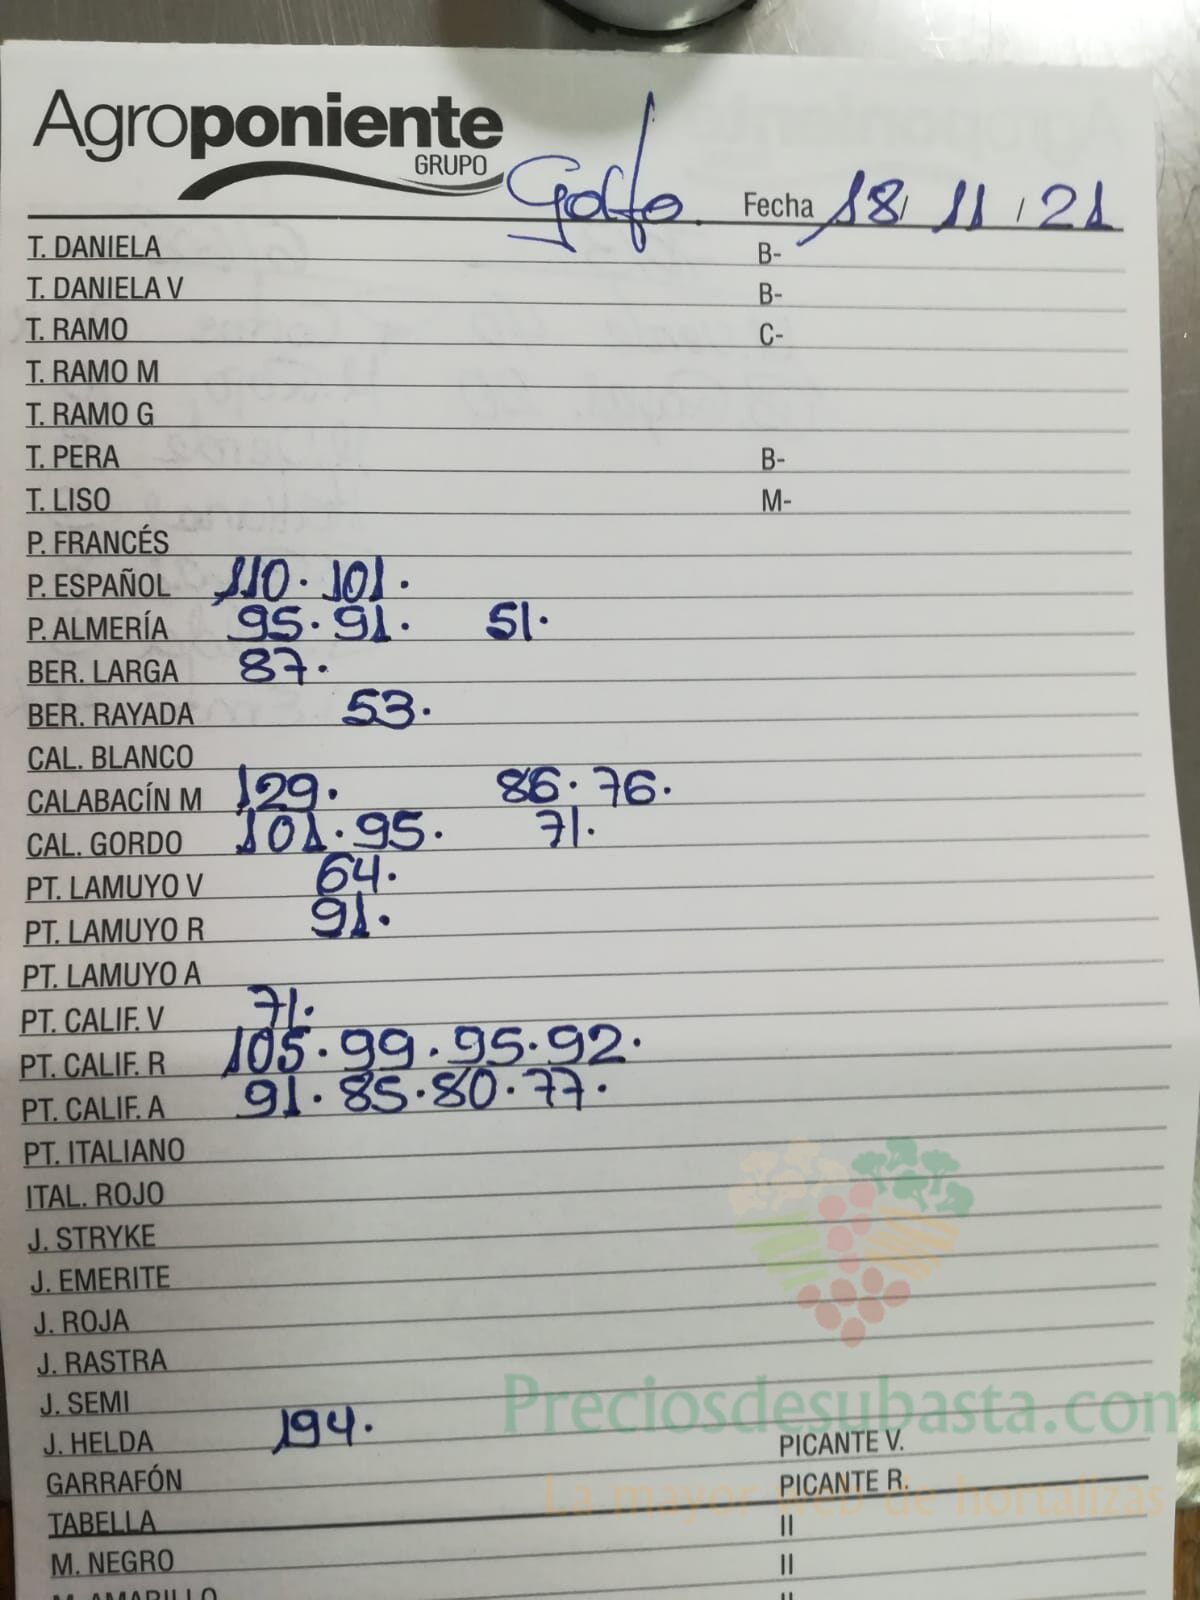 Agroponiente
GRUPO
Golfo. Fecha 18/ 11 / 21
T. DANIELA B-
T. DANIELA V B-
T. RAMO C-
T. RAMO M
T. RAMO G
T. PERA B-
T. LISO M-
P. FRANCÉS
P. ESPAÑOL 110. 101.
P. ALMERÍA 95. 91. 51.
BER. LARGA 87.
BER. RAYADA 53.
CAL. BLANCO
CALABACÍN M 129. 86. 76.
CAL. GORDO 101. 95. 71.
PT. LAMUYO V 64.
PT. LAMUYO R 91.
PT. LAMUYO A
PT. CALIF. V 71.
PT. CALIF. R 105. 99. 95. 92.
PT. CALIF. A 91. 85. 80. 77.
PT. ITALIANO
ITAL. ROJO
J. STRYKE
J. EMERITE
J. ROJA
J. RASTRA
J. SEMI
Preciosdesubasta.com
J. HELDA 194. PICANTE V.
GARRAFÓN PICANTE R.
La mayor web de hortalizas
TABELLA II
M. NEGRO II
M. AMARILLO II